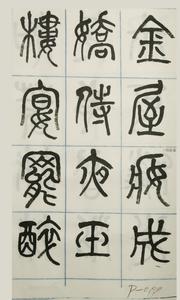 金屋妝成
嬌侍夜玉
樓宴罷醉